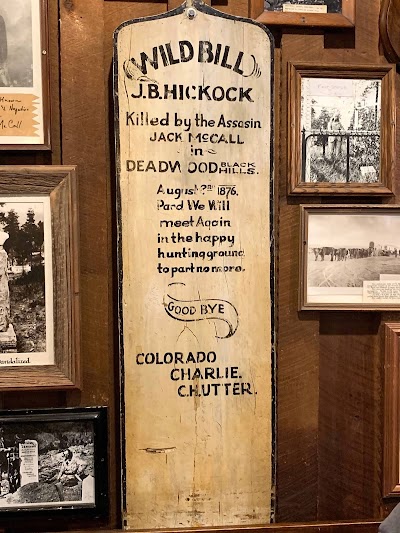 WILD BILL
J.B. HICKOCK
Killed by the Assasin
JACK McCALL
in
DEADWOOD BLACK HILLS.
August 2ND 1876.
Pard We Will
meet Again
in the happy
hunting ground
to part no more.
GOOD BYE
COLORADO
CHARLIE.
C.H. UTTER.
McCall